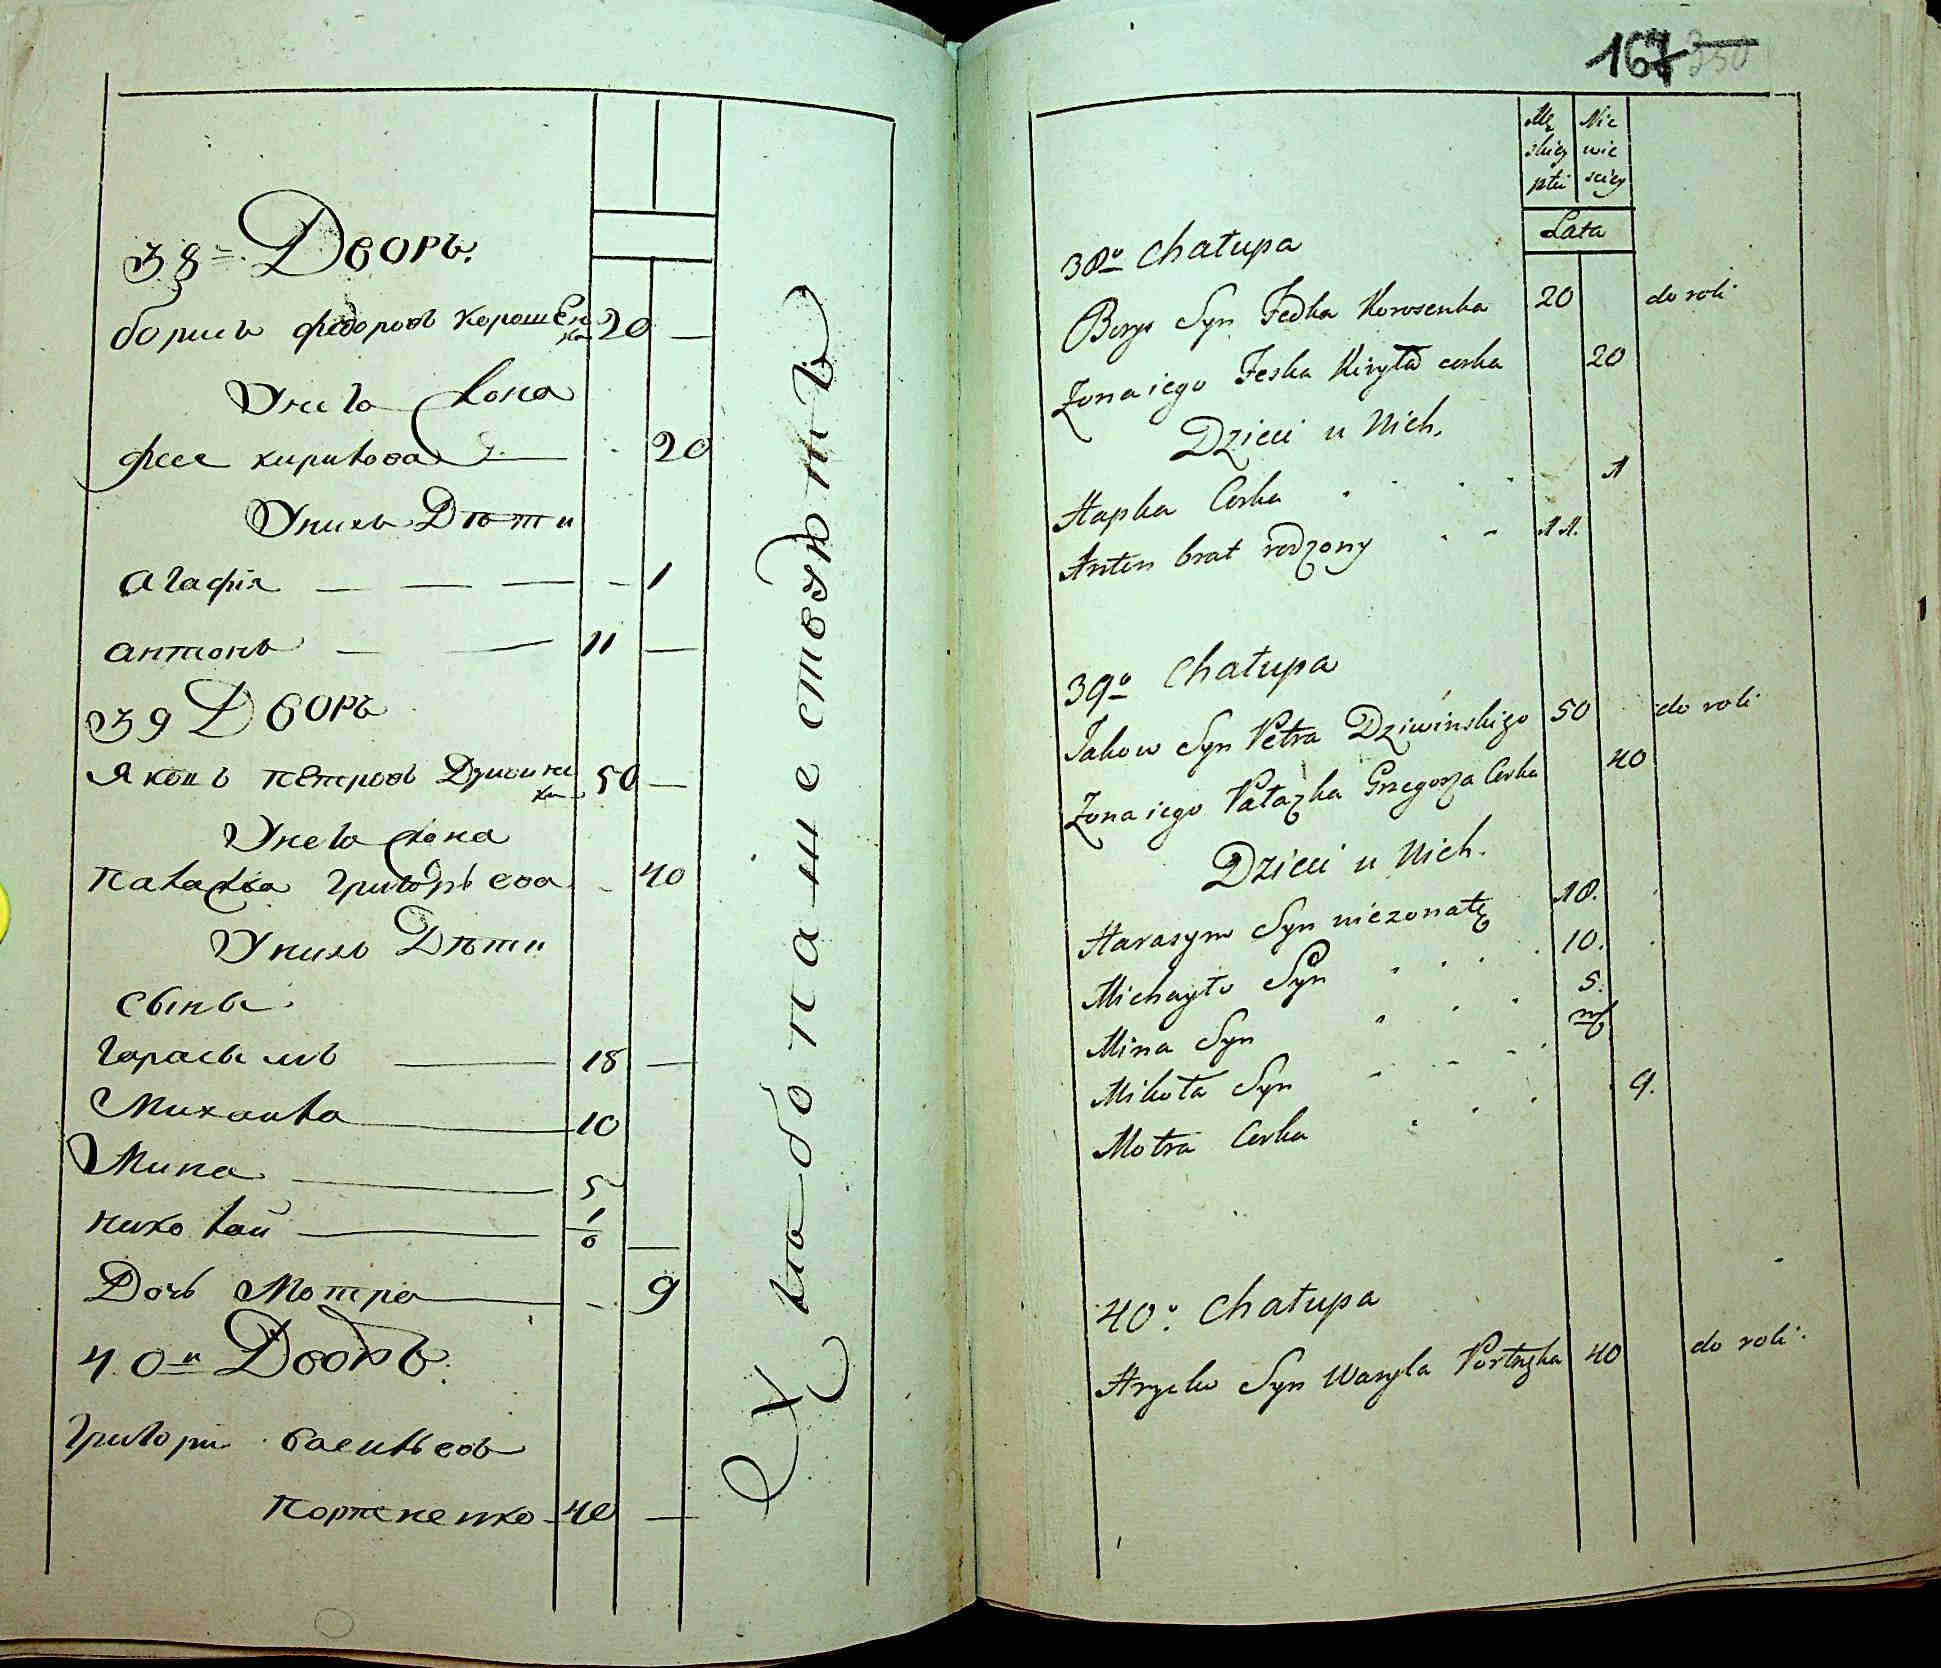 38 = Дворъ.
борисъ федоровъ Корошен
ко 20 —
Унего Жона
фескa кирилова — 20
Унихъ Дѣти
агафія — — — — 1
антонъ — — 11 —
39 Дворъ
Яковъ петровъ Дзивинс
ки 50 —
Унего жона
палажка григорьева - 40
Унихъ Дѣти
сыны
гарасымъ — 18 —
Михаила — 10
Мина — 5
николай — 1/6 —
Дочь Мотря — - 9
40-и Дворъ.
григори васильевъ
40 —
Кхлѣбопашествующи
167 350
Mę Nie
skiey wie
płci sciey
Lata
38o Chałupa
Borys Syn Fedka Korosenka 20 do roli
Zona iego Feska Kiryła corka 20
Dzieci u Nich.
Hapka Corka . . . 1
Anton brat rodzony . - 11.
39o Chałupa
Jakow Syn Petra Dziwińskiego 50 do roli
Zona iego Pałazka Grzegorza Corka 40
Dzieci u Nich.
Harasym Syn niezonatę 18.
Michayło Syn . . . . 10.
Mina Syn " . . 5.
Mikoła Syn - - - .
Motra Corka . . . 9.
40o. Chałupa
Hrycko Syn Wasyla 40 do roli.